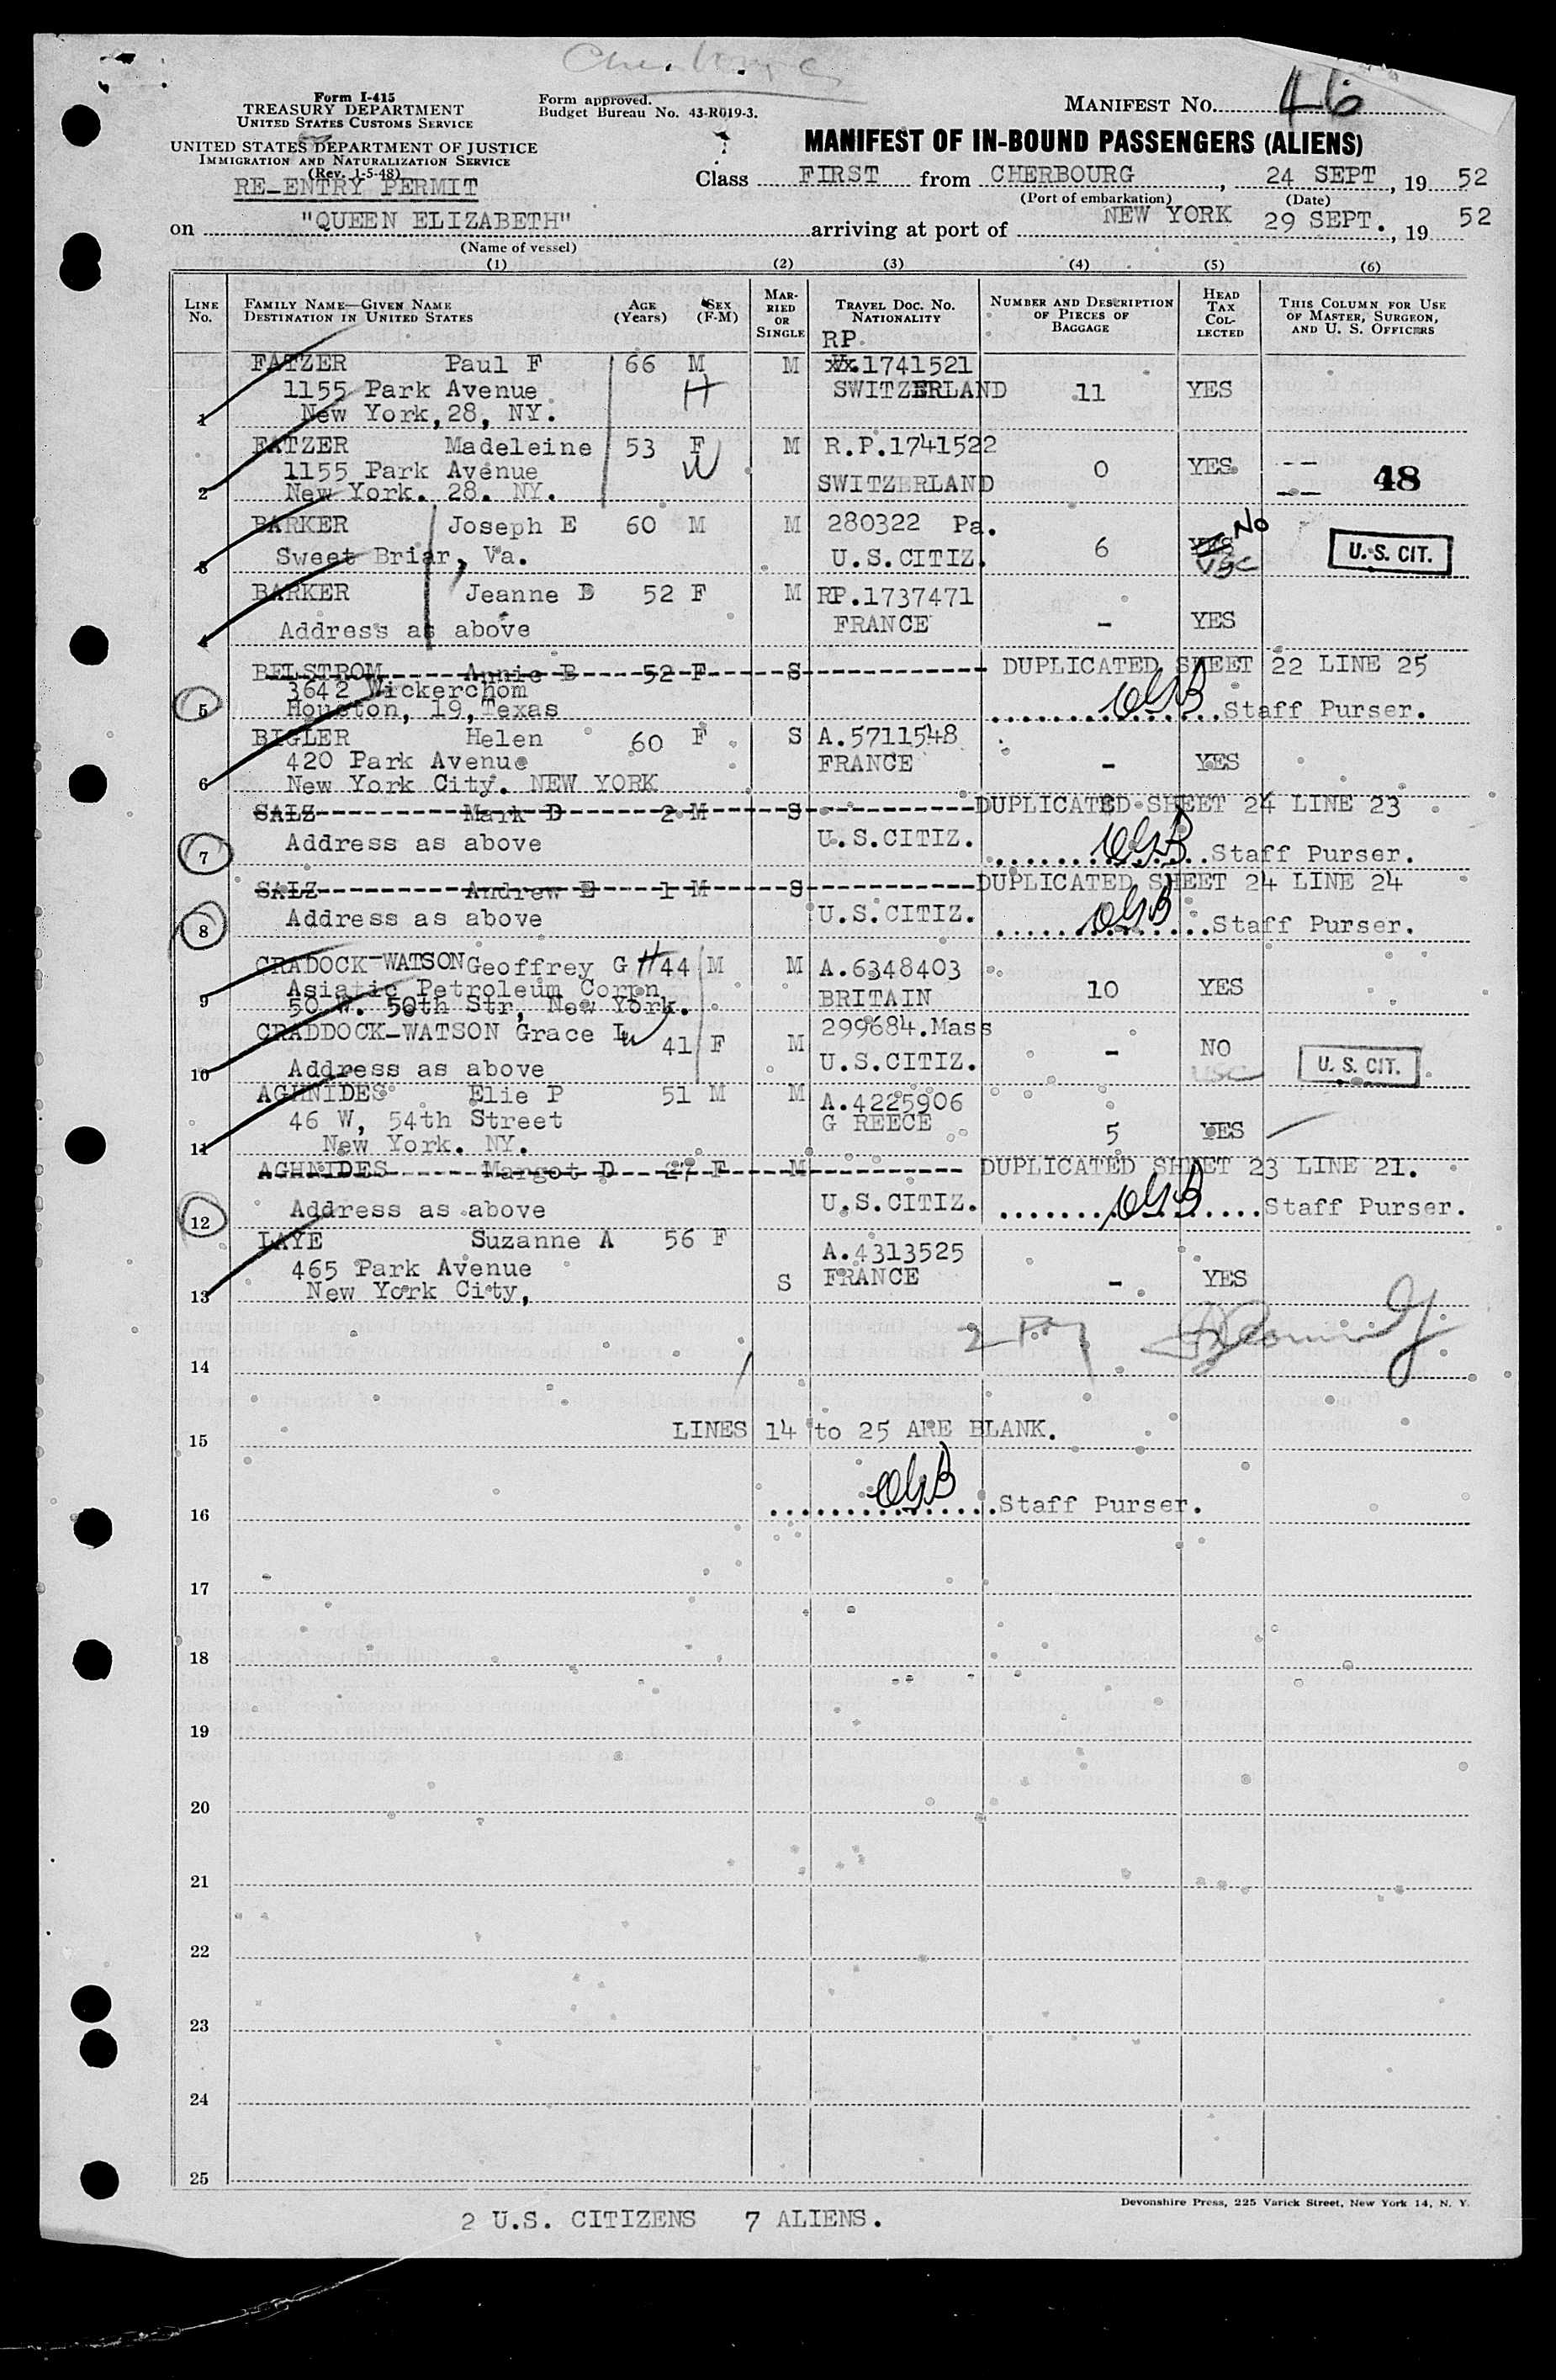 Form I-415
TREASURY DEPARTMENT
UNITED STATES CUSTOMS SERVICE
UNITED STATES DEPARTMENT OF JUSTICE
IMMIGRATION AND NATURALIZATION SERVICE
(Rev. 1-5-48)
RE-ENTRY PERMIT
Form approved.
Budget Bureau No. 43-R019-3.
MANIFEST No. 46
MANIFEST OF IN-BOUND PASSENGERS (ALIENS)
Class FIRST from CHERBOURG, 24 SEPT, 19 52
(Port of embarkation) (Date)
on "QUEEN ELIZABETH" arriving at port of NEW YORK 29 SEPT., 19 52
(Name of vessel)
(1) (2) (3) (4) (5) (6)
LINE No. FAMILY NAME—GIVEN NAME DESTINATION IN UNITED STATES AGE (Years) SEX (F-M) MARRIED OR SINGLE TRAVEL DOC. NO. NATIONALITY NUMBER AND DESCRIPTION OF PIECES OF BAGGAGE HEAD TAX COLLECTED THIS COLUMN FOR USE OF MASTER, SURGEON, AND U. S. OFFICERS
RP.
FATZER Paul F 66 M M xx.1741521
1155 Park Avenue H SWITZERLAND 11 YES
1 New York,28, NY.
FATZER Madeleine 53 F M R.P.1741522
1155 Park Avenue W SWITZERLAND 0 YES 48
2 New York. 28. NY.
BARKER Joseph E 60 M M 280322 Pa. No
3 Sweet Briar, Va. U.S.CITIZ. 6 YES USC U. S. CIT.
BARKER Jeanne D 52 F M RP.1737471
4 Address as above FRANCE - YES
BELSTROM Annie B 52 F S DUPLICATED SHEET 22 LINE 25
3642 Wickerchom
5 Houston, 19,Texas OGB Staff Purser.
BIGLER Helen 60 F S A.5711548
420 Park Avenue FRANCE - YES
6 New York City. NEW YORK
SALZ Mark D 2 M S DUPLICATED SHEET 24 LINE 23
7 Address as above U.S.CITIZ. OGB Staff Purser.
SALZ Andrew E 1 M S DUPLICATED SHEET 24 LINE 24
8 Address as above U.S.CITIZ. OGB Staff Purser.
CRADOCK-WATSON Geoffrey G H 44 M M A.6348403
Asiatic Petroleum Corpn BRITAIN 10 YES
9 50 W. 50th Str, New York.
CRADDOCK-WATSON Grace L W 41 F M 299684.Mass
10 Address as above U.S.CITIZ. - NO USC U. S. CIT.
AGHNIDES Elie P 51 M M A.4225906
46 W, 54th Street G REECE 5 YES
11 New York. NY.
AGHNIDES Margot D 27 F M DUPLICATED SHEET 23 LINE 21.
12 Address as above U.S.CITIZ. OGB Staff Purser.
LAYE Suzanne A 56 F A.4313525
465 Park Avenue S FRANCE - YES
13 New York City,
14
15 LINES 14 to 25 ARE BLANK.
16 OGB Staff Purser.
17
18
19
20
21
22
23
24
25
Devonshire Press, 225 Varick Street, New York 14, N. Y.
2 U.S. CITIZENS 7 ALIENS.